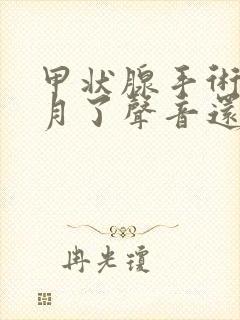 甲状腺手術
月了聲音還
冉光瓊